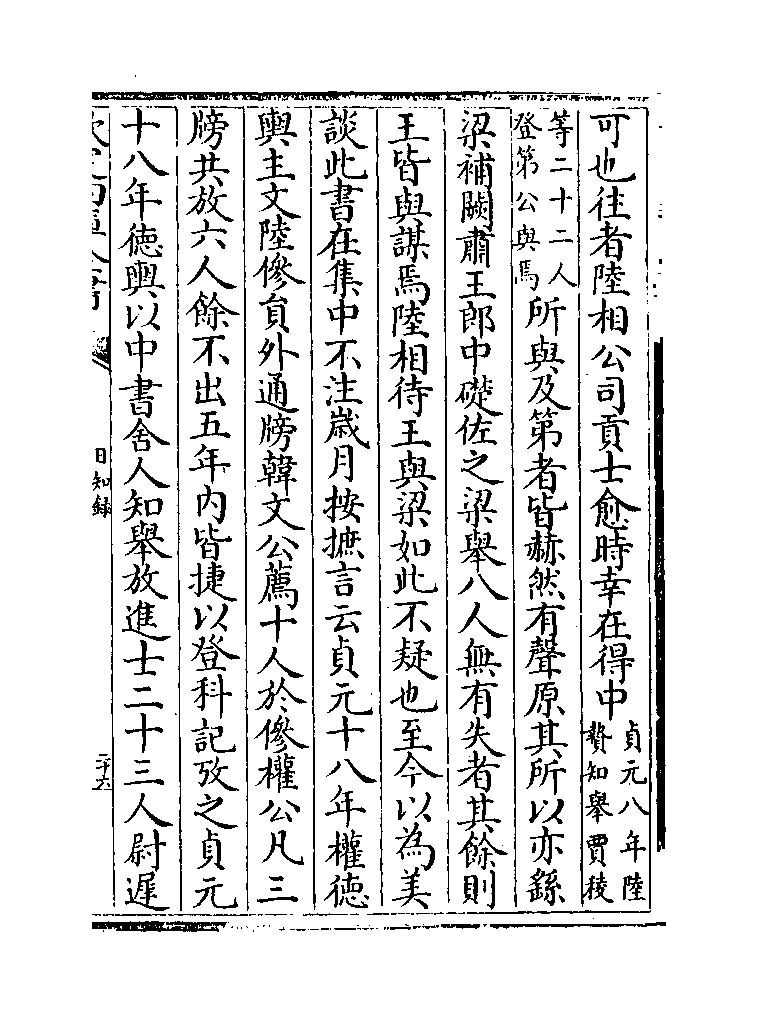 可也往者陸相公司貢士愈時幸在得中貞元八年陸贄知舉賈稜
等二十二人登第公與焉所與及第者皆赫然有聲原其所以亦繇
梁補闕肅王郎中礎佐之梁舉八人無有失者其餘則
王皆與謀焉陸相待王與梁如此不疑也至今以為美
談此書在集中不注歲月按摭言云貞元十八年權德
輿主文陸傪員外通牓韓文公薦十人於傪權公凡三
牓共放六人餘不出五年内皆捷以登科記攷之貞元
十八年德輿以中書舍人知舉放進士二十三人尉遲
日知録
二十六